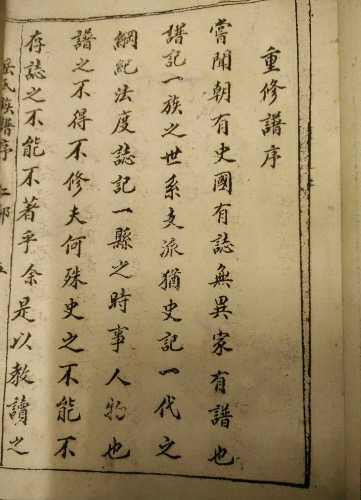 重修譜序
嘗聞朝有史國有誌無異家有譜也
譜記一族之世系支派猶史記一代之
綱紀法度誌記一縣之時事人物也
譜之不得不修夫何殊史之不能不
存誌之不能不著乎余是以教讀之
氏族譜序